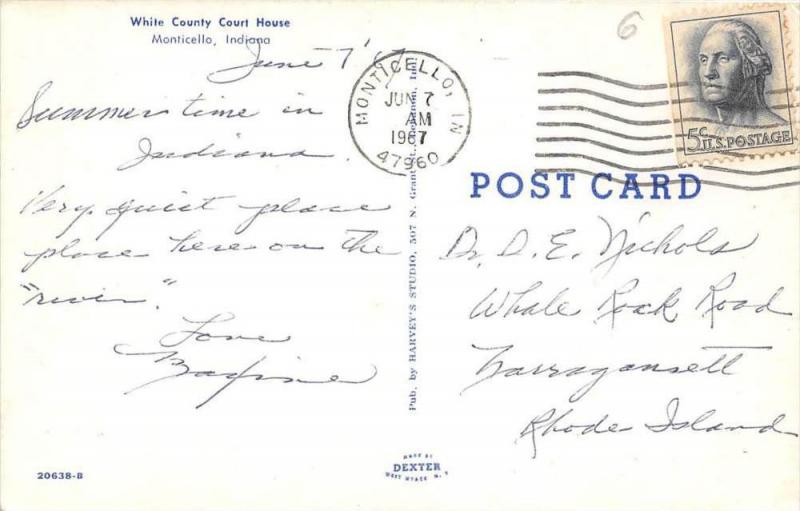 White County Court House
Monticello, Indiana
June 7 '67
Summer time in
Indiana.
Very quiet place
place here on the
"river".
Love
Maxine
Pub. by HARVEY'S STUDIO, 507 N. Grant St.
MONTICELLO, IN
JUN 7
AM
1967
47960
6
5c U.S. POSTAGE
POST CARD
Dr. D. E. Nichols
Whale Rock Road
Narragansett
Rhode Island
20638-B
MADE BY
DEXTER
WEST NYACK N.Y.